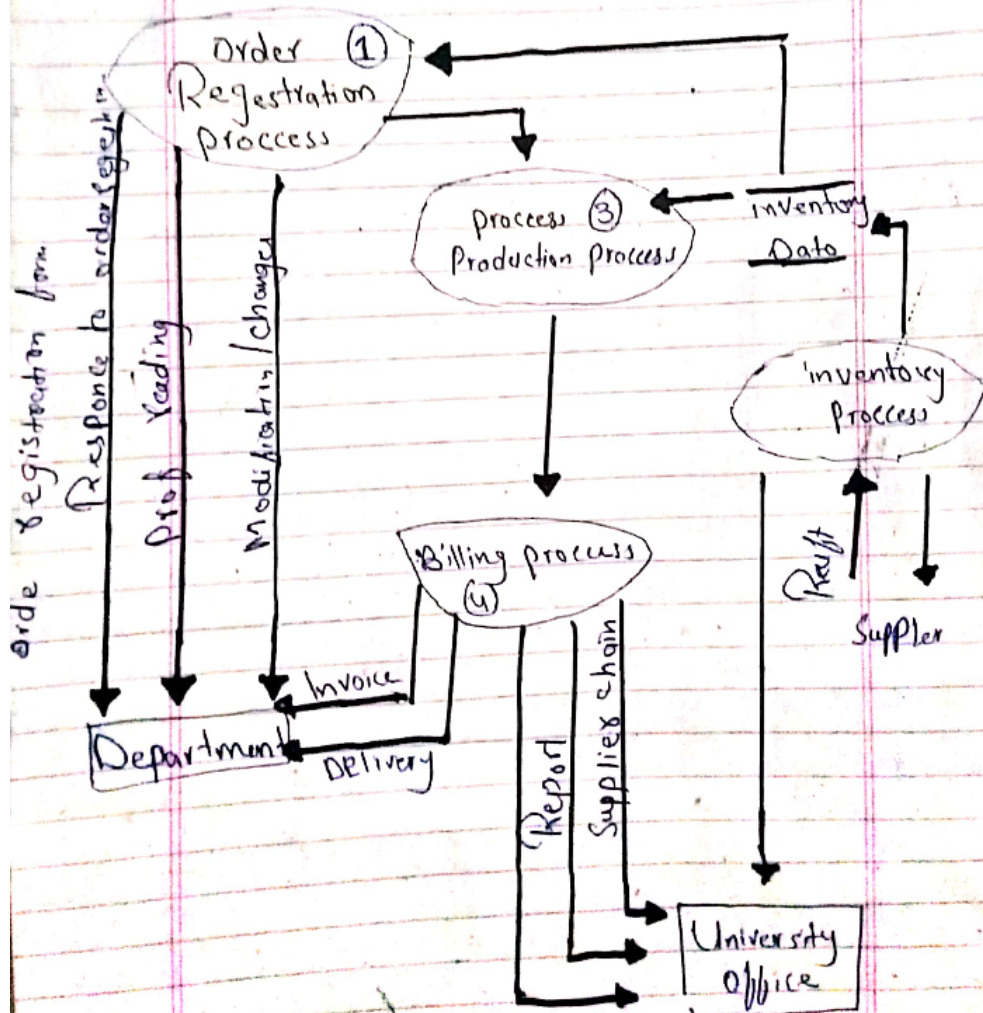 Order ①
Regestration
proccess
orde registration form
Responce to order
Prof reading
Modification/changes
process ③
Production process
inventory
Data
inventory
proccess
Billing process
④
Supplier
Invoice
Delivery
Department
Report
Supplier chain
University
office